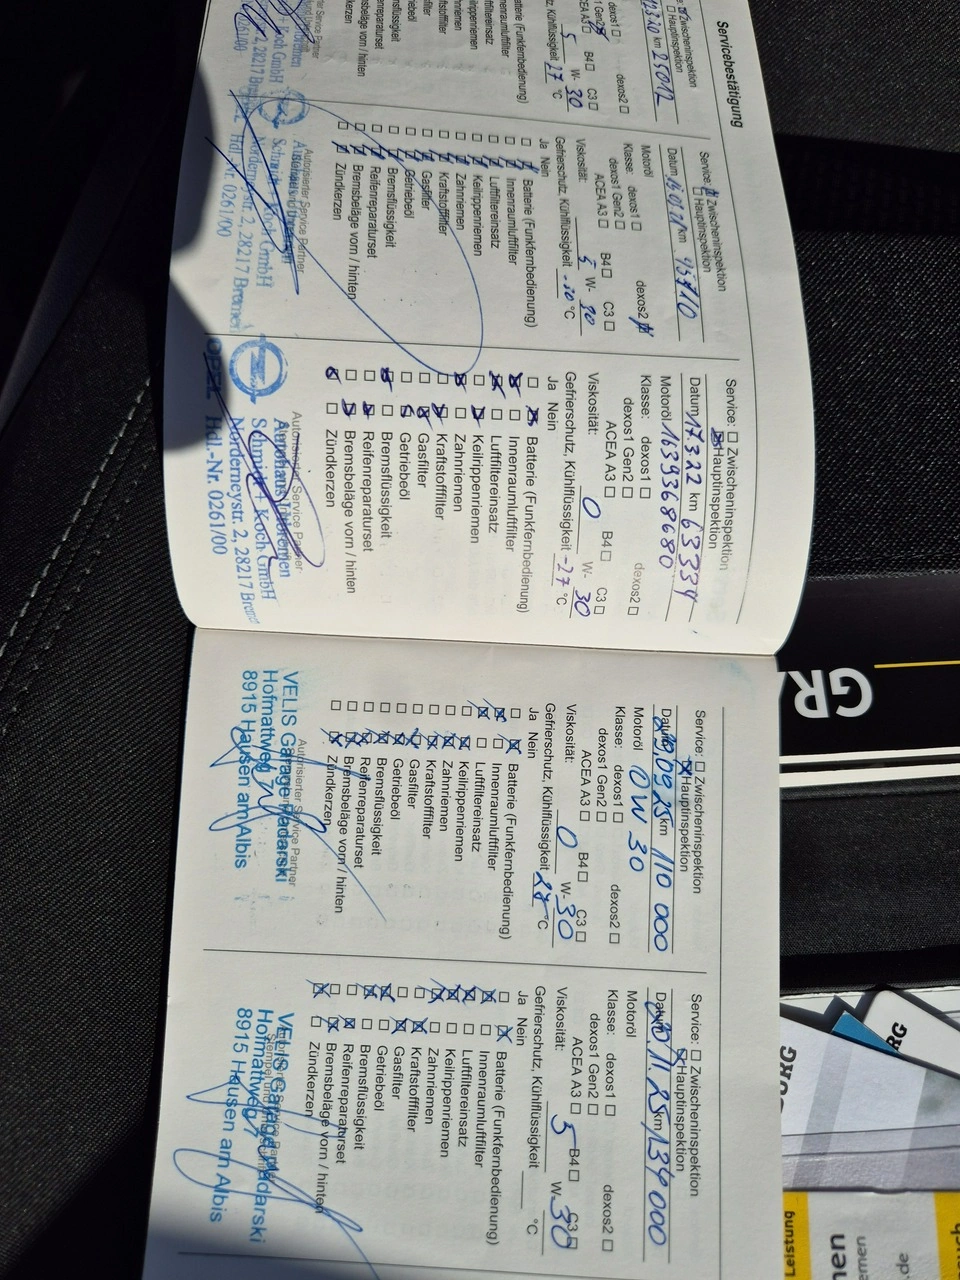 Servicebestätigung
Zwischeninspektion
Hauptinspektion
km 25012
dexos1
dexos2
B4
C3
5 W- 30
Kühlflüssigkeit -27 °C
Batterie (Funkfernbedienung)
Service: Zwischeninspektion
Hauptinspektion
Datum km 45710
Motoröl
Klasse: dexos1 dexos2
dexos1 Gen2
ACEA A3 B4 C3
Viskosität: 5 W- 30
Gefrierschutz, Kühlflüssigkeit °C
Ja Nein
Batterie (Funkfernbedienung)
Innenraumluftfilter
Luftfiltereinsatz
Keilrippenriemen
Zahnriemen
Kraftstofffilter
Gasfilter
Getriebeöl
Bremsflüssigkeit
Reifenreparaturset
Bremsbeläge vorn / hinten
Zündkerzen
Autorisierter Service Partner
Schmidt + Koch GmbH
Norderneystr. 2, 28217 Bremen
Hdl.-Nr. 0261/00
Service: Zwischeninspektion
Hauptinspektion
Datum 17322 km 63334
Motoröl 1639368680
Klasse: dexos1 dexos2
dexos1 Gen2
ACEA A3 B4 C3
Viskosität: 0 W- 30
Gefrierschutz, Kühlflüssigkeit -27 °C
Ja Nein
Batterie (Funkfernbedienung)
Innenraumluftfilter
Luftfiltereinsatz
Keilrippenriemen
Zahnriemen
Kraftstofffilter
Gasfilter
Getriebeöl
Bremsflüssigkeit
Reifenreparaturset
Bremsbeläge vorn / hinten
Zündkerzen
Autorisierter Service Partner
Schmidt + Koch GmbH
Norderneystr. 2, 28217 Bremen
OPEL Hdl.-Nr. 0261/00
Service: Zwischeninspektion
Hauptinspektion
Datum 29.09.25 km 110 000
Motoröl 0W 30
Klasse: dexos1 dexos2
dexos1 Gen2
ACEA A3 B4 C3
Viskosität: 0 W- 30
Gefrierschutz, Kühlflüssigkeit 27 °C
Ja Nein
Batterie (Funkfernbedienung)
Innenraumluftfilter
Luftfiltereinsatz
Keilrippenriemen
Zahnriemen
Kraftstofffilter
Gasfilter
Getriebeöl
Bremsflüssigkeit
Reifenreparaturset
Bremsbeläge vorn / hinten
Zündkerzen
Autorisierter Service Partner
VELIS Garage Madarski
Hofmattweg
8915 Hausen am Albis
Service: Zwischeninspektion
Hauptinspektion
Datum 11.25 km 134 000
Motoröl
Klasse: dexos1 dexos2
dexos1 Gen2
ACEA A3 B4 C3
Viskosität: 5 W- 30
Gefrierschutz, Kühlflüssigkeit °C
Ja Nein
Batterie (Funkfernbedienung)
Innenraumluftfilter
Luftfiltereinsatz
Keilrippenriemen
Zahnriemen
Kraftstofffilter
Gasfilter
Getriebeöl
Bremsflüssigkeit
Reifenreparaturset
Bremsbeläge vorn / hinten
Zündkerzen
VELIS Garage Madarski
Hofmattweg
8915 Hausen am Albis
GR
RG
Leistung